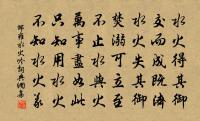 水火得其御
交而成既濟
水火失其御
焚溺可立至
不止水與火
萬事盡如此
只知用水火
不知水火義
邵雍水火吟詞典網